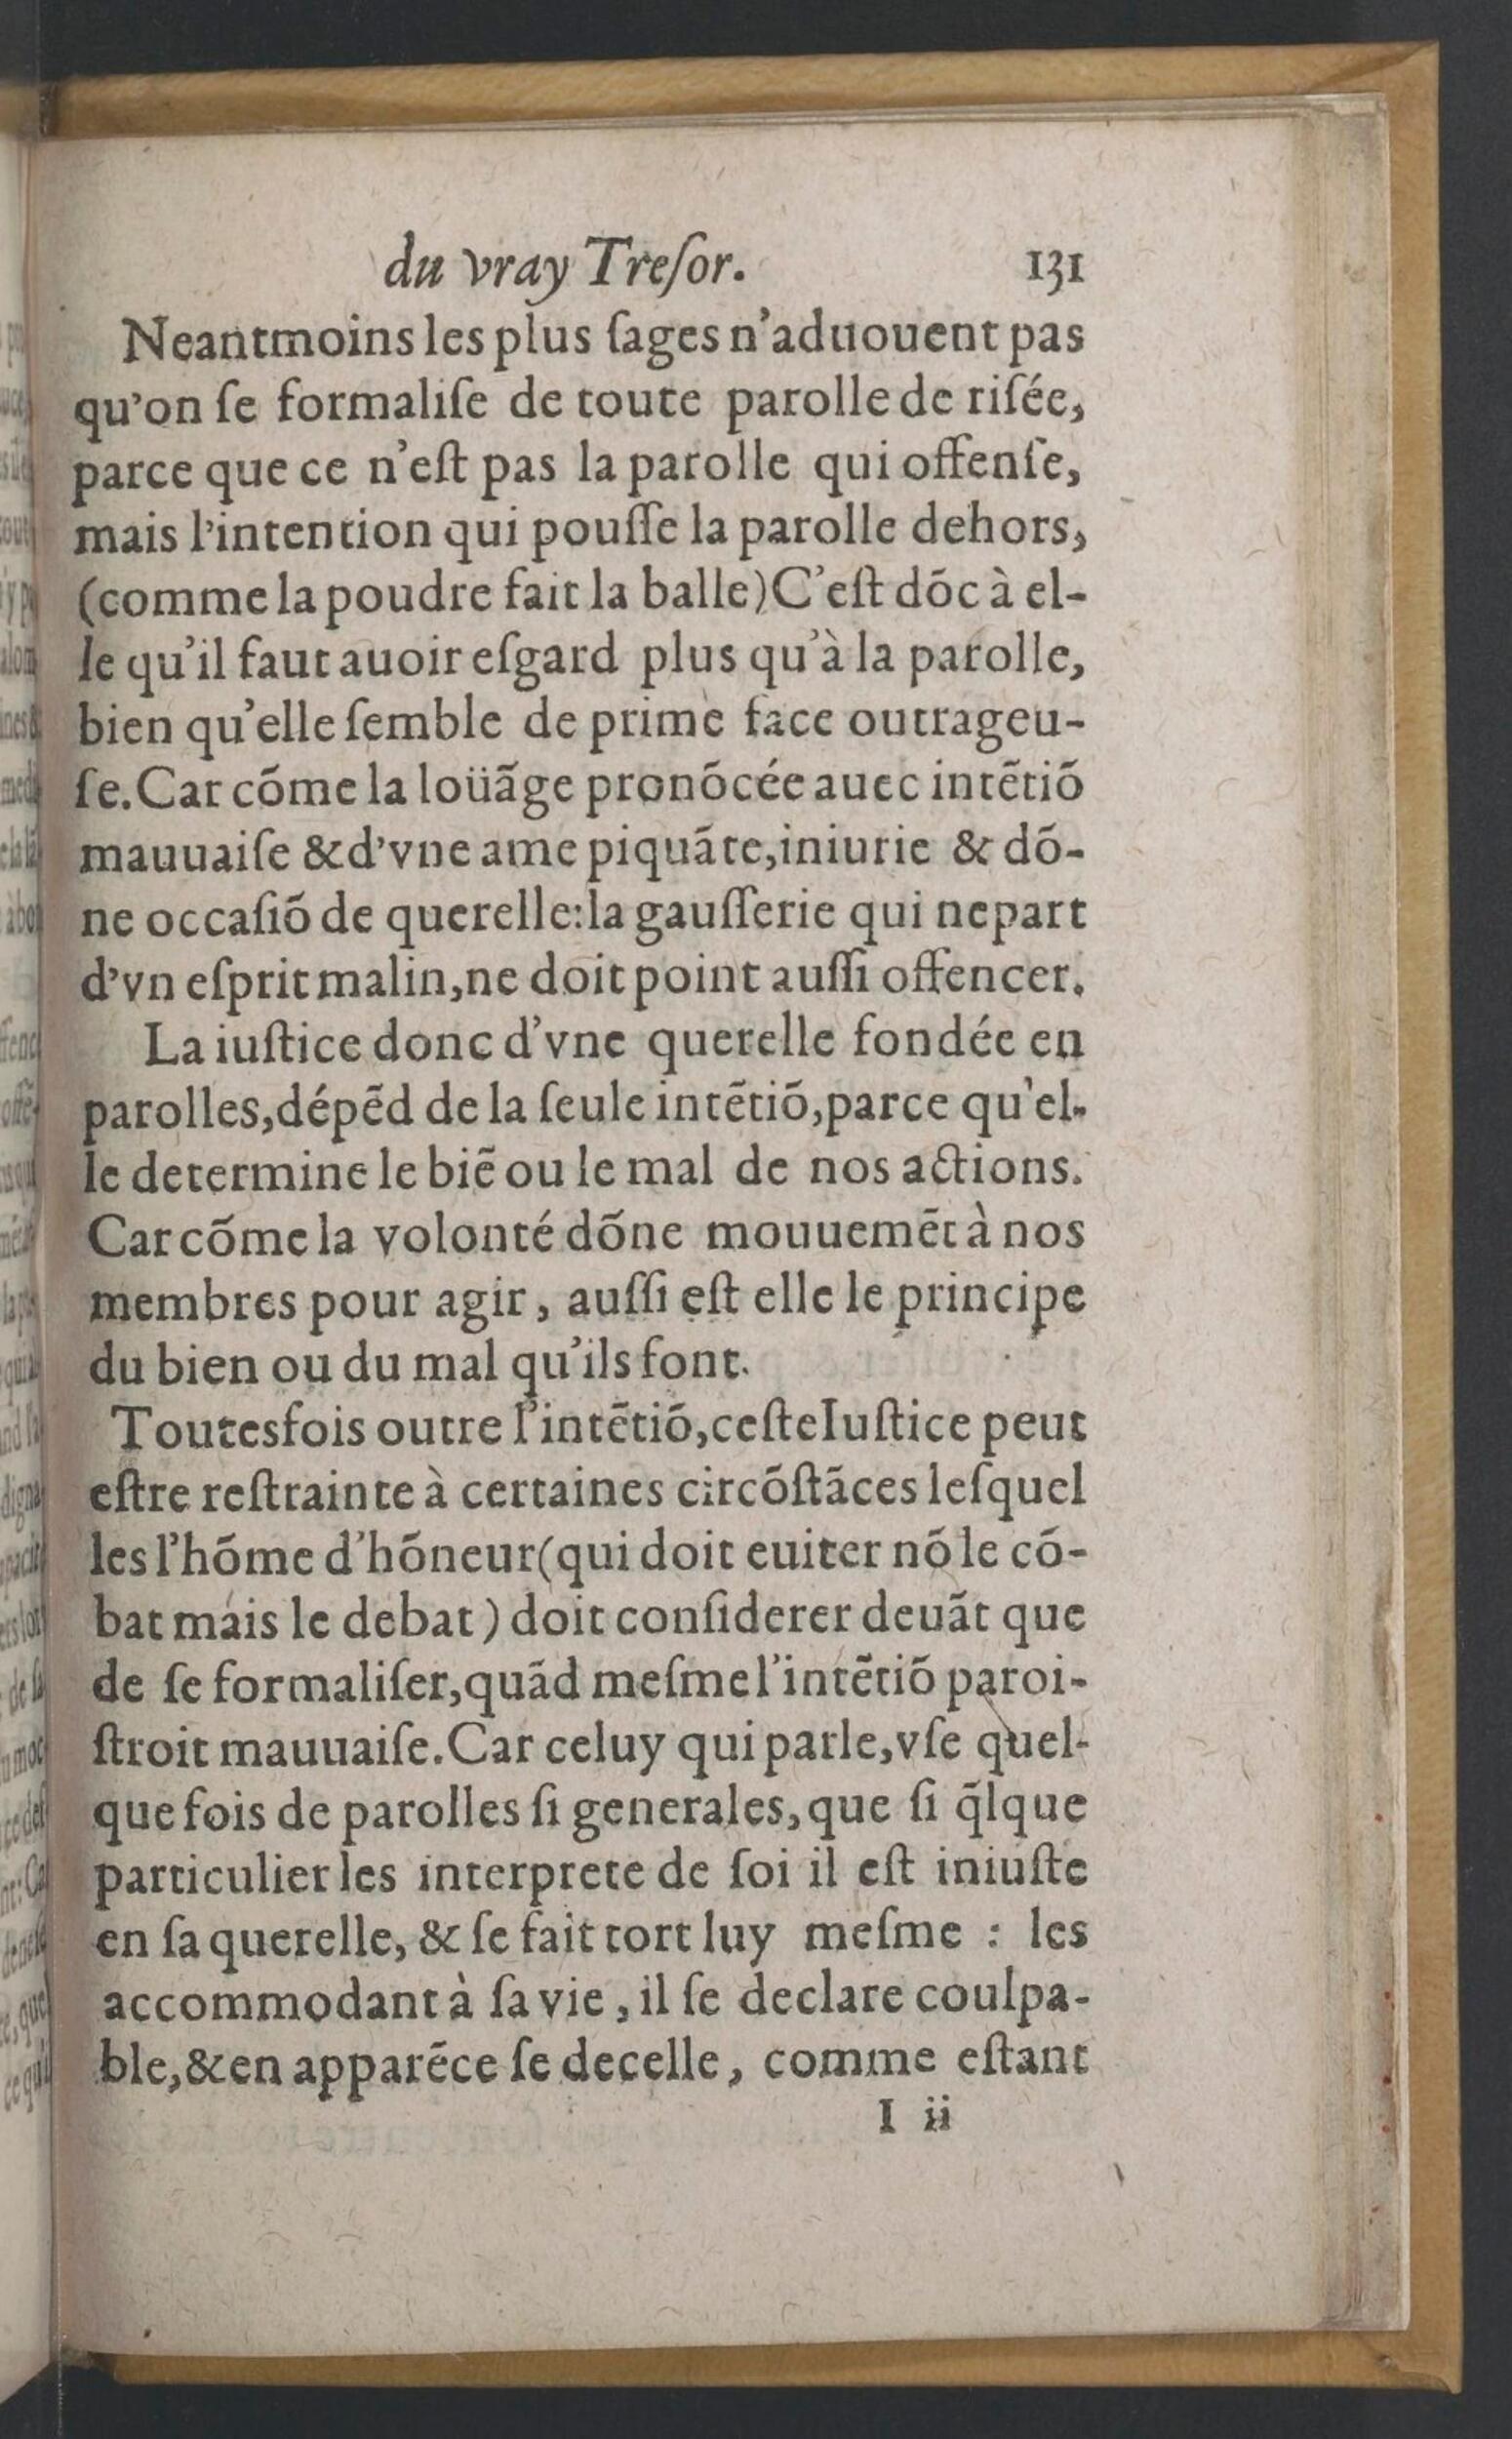 du vray Treſor. 131
Neantmoins les plus ſages n'aduouent pas
qu'on ſe formaliſe de toute parolle de riſée,
parce que ce n'eſt pas la parolle qui offenſe,
mais l'intention qui pouſſe la parolle dehors,
(comme la poudre fait la balle) C'eſt dõc à el-
le qu'il faut auoir eſgard plus qu'à la parolle,
bien qu'elle ſemble de prime face outrageu-
ſe. Car cõme la loüãge pronõcée auec intẽtiõ
mauuaiſe & d'vne ame piquãte, iniurie & dõ-
ne occaſiõ de querelle: la gauſſerie qui ne part
d'vn eſprit malin, ne doit point auſſi offencer.
La iuſtice donc d'vne querelle fondée en
parolles, dépẽd de la ſeule intẽtiõ, parce qu'el-
le determine le biẽ ou le mal de nos actions.
Car cõme la volonté dõne mouuemẽt à nos
membres pour agir, auſſi eſt elle le principe
du bien ou du mal qu'ils font.
Toutesfois outre l'intẽtiõ, ceſte Iuſtice peut
eſtre reſtrainte à certaines circõſtãces leſquel
les l'hõme d'hõneur (qui doit euiter nõ le cõ-
bat mais le debat) doit conſiderer deuãt que
de ſe formaliſer, quãd meſme l'intẽtiõ paroi-
ſtroit mauuaiſe. Car celuy qui parle, vſe quel-
que fois de parolles ſi generales, que ſi q̃lque
particulier les interprete de ſoi il eſt iniuſte
en ſa querelle, & ſe fait tort luy meſme : les
accommodant à ſa vie, il ſe declare coulpa-
ble, & en apparẽce ſe decelle, comme eſtant
I ii